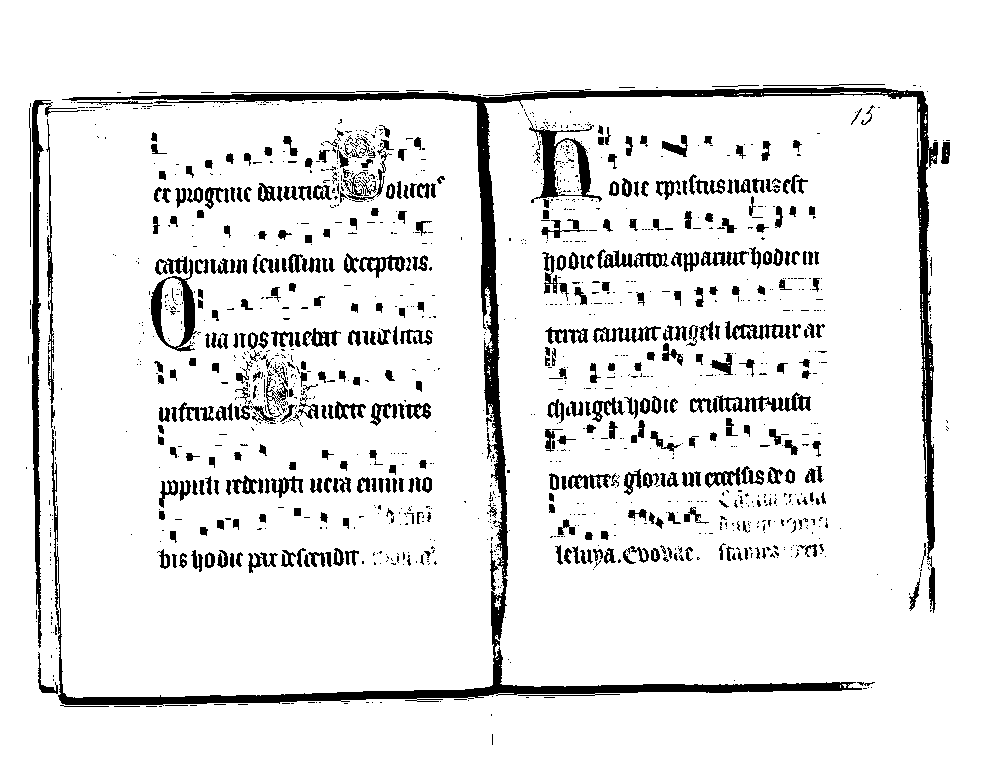 et progenie dauitica. Soluens
cathenam seuissimi deceptoris.
Qua nos tenebat crudelitas
infernalis. Gaudete gentes
populi redempti uera enim no
bis hodie pax descendit.
15
Hodie xpistus natus est
hodie saluator apparuit hodie in
terra canunt angeli letantur ar
changeli hodie exultant iusti
dicentes gloria in excelsis deo al
leluya. Evovae.